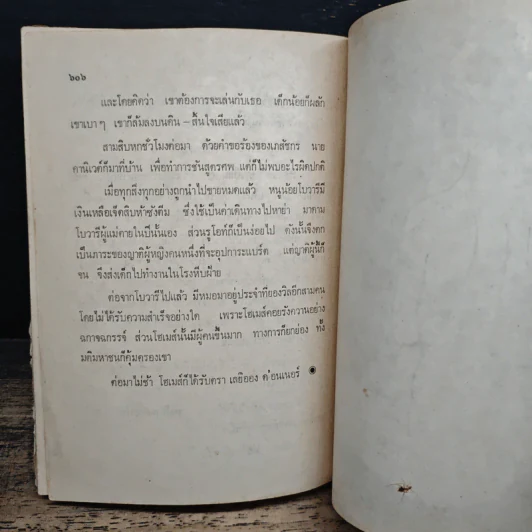 ๖๐๖
และโดยคิดว่า เขาต้องการจะเล่นกับเธอ เด็กน้อยก็ผลัก
เขาเบาๆ เขาก็ล้มลงบนดิน – สิ้นใจเสียแล้ว
สามสิบหกชั่วโมงต่อมา ด้วยคำขอร้องของเภสัชกร นาย
คานิเวต์ก็มาที่บ้าน เพื่อทำการชันสูตรศพ แต่ก็ไม่พบอะไรผิดปกติ
เมื่อทุกสิ่งทุกอย่างถูกนำไปขายหมดแล้ว หนูน้อยโบวารีมี
เงินเหลือเจ็ดสิบห้าซังตีม ซึ่งใช้เป็นค่าเดินทางไปหาย่า มาดาม
โบวารีผู้แม่ตายในปีนั้นเอง ส่วนรูโอท์ก็เป็นง่อยไป ดังนั้นจึงตก
เป็นภาระของญาติผู้หญิงคนหนึ่งที่จะอุปการะแบร์ต แต่ญาติผู้นี้ก็
จน จึงส่งเด็กไปทำงานในโรงหีบฝ้าย
ต่อจากโบวารีไปแล้ว มีหมอมาอยู่ประจำที่ยองวิลอีกสามคน
โดยไม่ได้รับความสำเร็จอย่างใด เพราะโฮเมส์คอยรังควานอย่าง
ฉกาจฉกรรจ์ ส่วนโฮเมส์นั้นมีผู้คนขึ้นมาก ทางการก็ยกย่อง ทั้ง
มติมหาชนก็คุ้มครองเขา
ต่อมาไม่ช้า โฮเมส์ก็ได้รับตรา เลยิออง ด์อนเนอร์